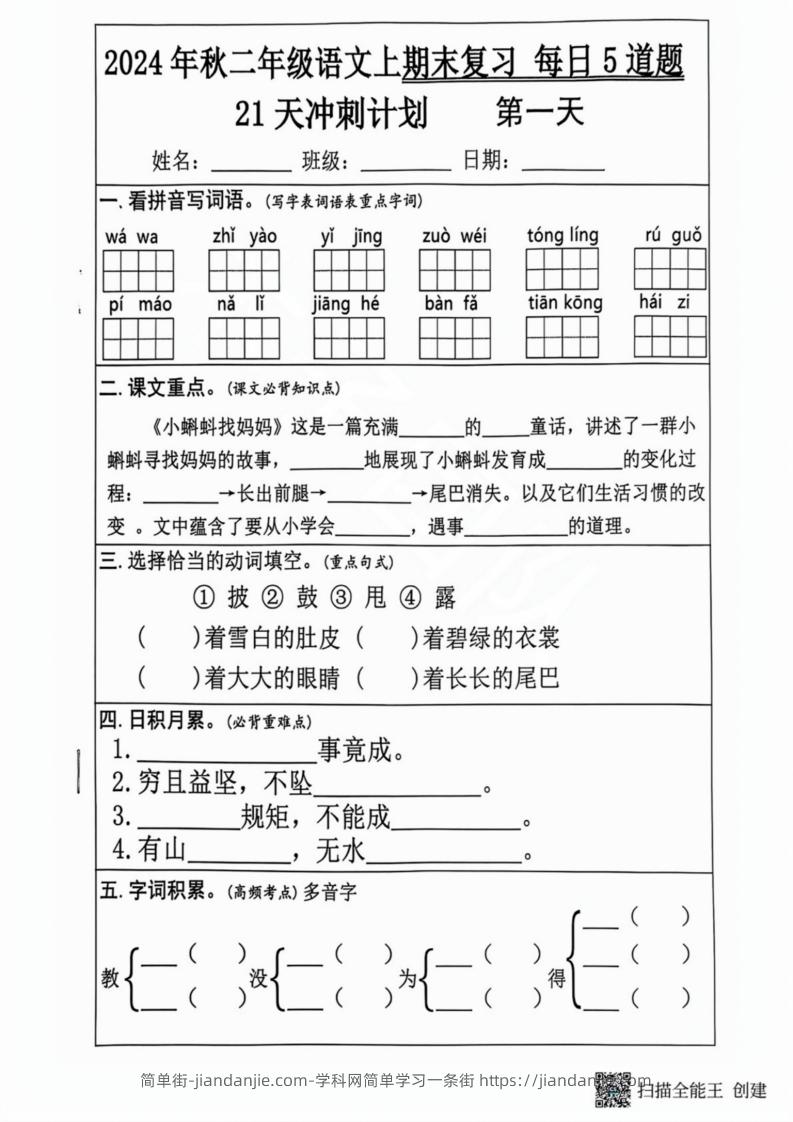 2024年秋二年级语文上期末复习 每日5道题
21天冲刺计划 第一天
姓名：________ 班级：_________ 日期：________
一.看拼音写词语。(写字表词语表重点字词)
wá wa zhǐ yào yǐ jīng zuò wéi tóng líng rú guǒ
pí máo nǎ lǐ jiāng hé bàn fǎ tiān kōng hái zi
二.课文重点。(课文必背知识点)
《小蝌蚪找妈妈》这是一篇充满_______的_____童话，讲述了一群小
蝌蚪寻找妈妈的故事，________地展现了小蝌蚪发育成________的变化过
程：________→长出前腿→_________→尾巴消失。以及它们生活习惯的改
变 。文中蕴含了要从小学会________，遇事___________的道理。
三.选择恰当的动词填空。(重点句式)
① 披 ② 鼓 ③ 甩 ④ 露
( )着雪白的肚皮 ( )着碧绿的衣裳
( )着大大的眼睛 ( )着长长的尾巴
四.日积月累。(必背重难点)
1.______________事竟成。
2.穷且益坚，不坠_____________。
3.________规矩，不能成__________。
4.有山________，无水____________。
五.字词积累。(高频考点)多音字
教 ___( ) ___( ) 没 ___( ) ___( ) 为 ___( ) ___( ) 得 ___( ) ___( ) ___( )
简单街-jiandanjie.com-学科网简单学习一条街 https://jiandanjie.com
扫描全能王 创建